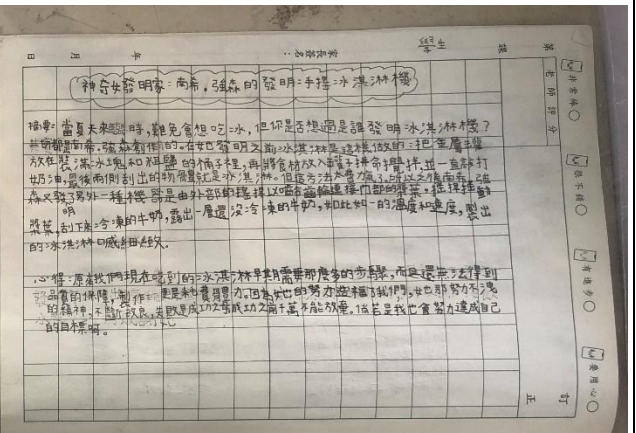 神奇女發明家:南希,強森的發明:手搖冰淇淋機
摘要:當夏天來臨時,難免會想吃冰,但你是否想過是誰發明冰淇淋機?
南希,強森創作的。在她發明之前冰淇淋是這樣做的:把金屬罐
放在裝滿冰塊和粗鹽的桶子裡,再將食材放入罐子拚命攪拌並一直敲打
奶油,最後兩側刮出的物體就是冰淇淋。但這方法太費力氣了,所以之後南希,強
森又發明了另外一種機器是由外部的搖桿以
漿葉,刮下冰冷凍的牛奶,露出一層還沒冷凍的牛奶,如此如一的溫度和速度,製出
的冰淇淋口感細緻。
心得:原來我們現在吃到的冰淇淋早期需要那麼多的步驟,而且還無法得到
品質的保障,製作起來也費力。因為她的努力造福了我們,她那努力不懈
的精神,不斷改良,失敗是成功之母成功之前千萬不能放棄。倘若是我也會努力達成自己
的目標啊。
第 課
老師評分
非常棒
很不錯
有進步
要用心
訂正
家長簽名:
年 月 日